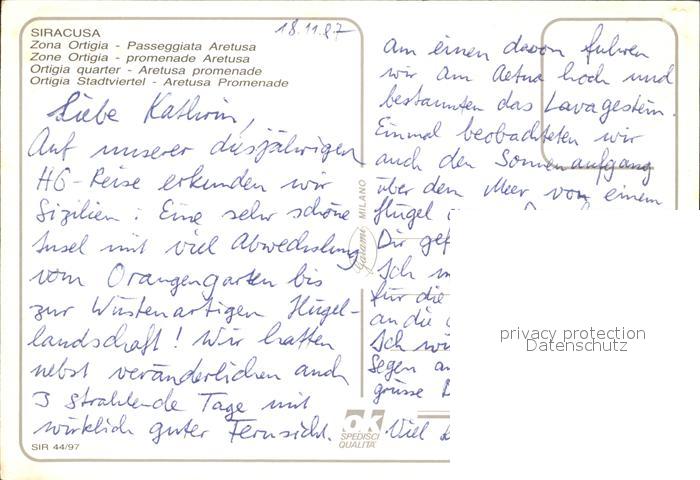 SIRACUSA
Zona Ortigia - Passeggiata Aretusa
Zone Ortigia - promenade Aretusa
Ortigia quarter - Aretusa promenade
Ortigia Stadtviertel - Aretusa Promenade
18.11.87
Liebe Kathrin,
Auf unserer diesjährigen
HG-Reise erkunden wir
Sizilien: Eine sehr schöne
Insel mit viel Abwechslung
vom Orangengarten bis
zur Wüstenartigen Hügel-
landschaft! Wir hatten
nebst veränderlichen auch
3 strahlende Tage mit
wirklich guter Fernsicht.
SIR 44/97
Galami MILANO
ok
SPEDISCI
QUALITA'
am einen davon fuhren
wir am Aetna hoch und
bestaunten das Lavagestein.
Einmal beobachteten wir
auch den Sonnenaufgang
über dem Meer von einem
Hügel
Dir
Ich
für die
an die
Ich
Segen
grüsse
Viel
privacy protection
Datenschutz